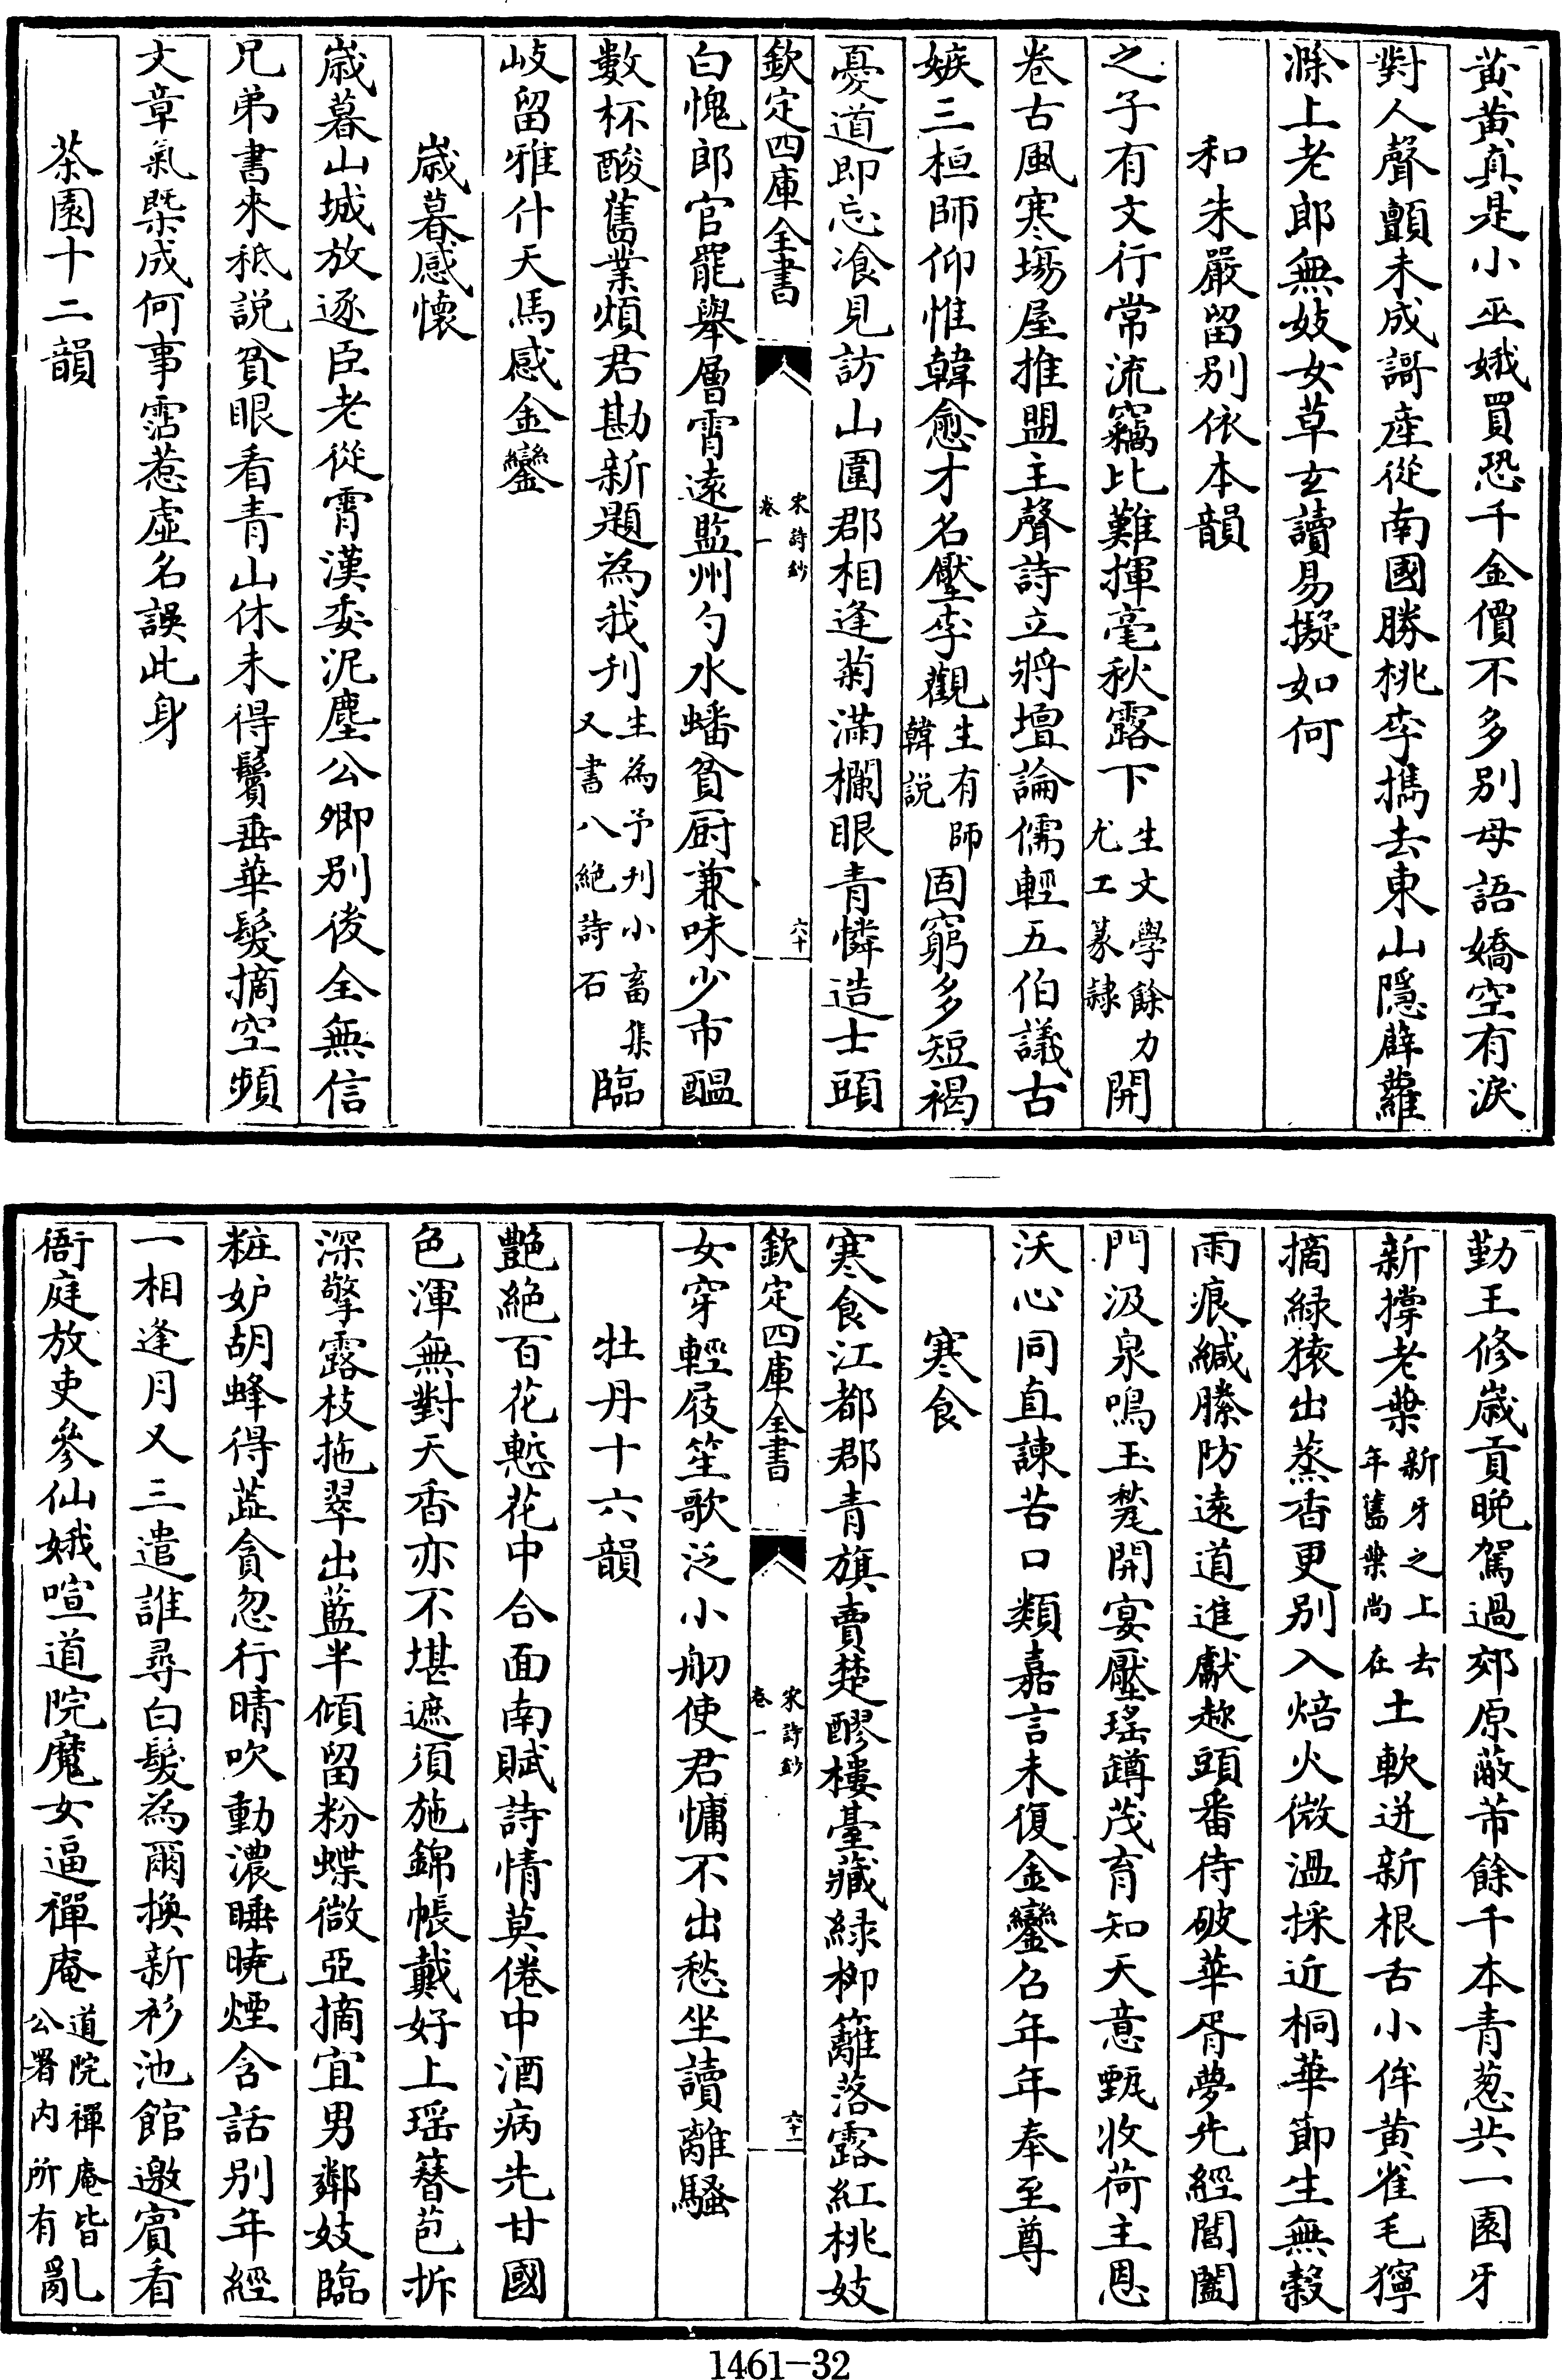 黄黄真是小巫娥買恐千金價不多别母語嬌空有淚
對人聲顫未成謌產從南國勝桃李擕去東山隱薜蘿
滁上老郎無妓女草玄讀易擬如何
和朱嚴留别依本韻
之子有文行常流竊比難揮毫秋露下生文學餘力尤工篆隸開
卷古風寒塲屋推盟主聲詩立將壇論儒輕五伯議古
嫉三桓師仰惟韓愈才名壓李觀生有師韓説固窮多短褐
憂道即忘飡見訪山圍郡相逢菊滿欄眼青憐造士頭
欽定四庫全書
宋詩鈔
卷一
六十
白愧郎官罷舉層霄遠監州勺水蟠貧厨兼味少市醖
數杯酸舊業煩君勘新題為我刋生為予刋小畜集又書八絶詩石臨
岐留雅什天馬感金鑾
歲暮感懷
歲暮山城放逐臣老從霄漢委泥塵公卿别後全無信
兄弟書來秖説貧眼看青山休未得鬢垂華髮摘空頻
文章氣槩成何事霑惹虛名誤此身
茶園十二韻
勤王修歲貢晚駕過郊原蔽芾餘千本青葱共一園牙
新撐老葉新牙之上去年舊葉尚在土軟迸新根舌小侔黄雀毛獰
摘緑猿出蒸香更别入焙火微温採近桐華節生無榖
雨痕緘縢防遠道進獻趂頭番待破華胥夢先經閶闔
門汲泉鳴玉甃開宴壓瑤罇茂育知天意甄收荷主恩
沃心同直諫苦口類嘉言未復金鑾召年年奉至尊
寒食
寒食江都郡青旗賣楚醪樓臺藏緑柳籬落露紅桃妓
欽定四庫全書
宋詩鈔
卷一
六十一
女穿輕屐笙歌泛小舠使君慵不出愁坐讀離騷
牡丹十六韻
艷絶百花慙花中合面南賦詩情莫倦中酒病先甘國
色渾無對天香亦不堪遮須施錦帳戴好上瑶簪苞拆
深擎露枝拖翠出藍半傾留粉蝶微亞摘宜男鄰妓臨
粧妒胡蜂得蘂貪忽行晴吹動濃睡曉煙含話别年經
一相逢月又三遣誰尋白髮為爾換新衫池館邀賓看
衙庭放吏參仙娥喧道院魔女逼禪庵道院禪庵皆公署内所有亂
1461—32